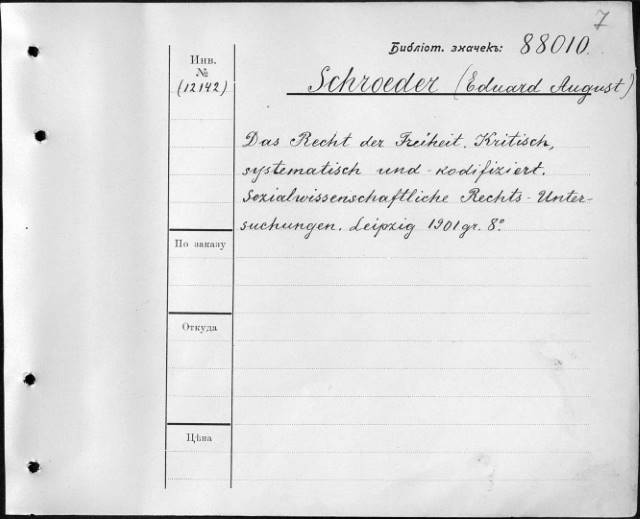 7
Библіот. значекъ: 88010.
Инв.
№
(12142)
Schroeder (Eduard August)
Das Recht der Freiheit. Kritisch,
systematisch und kodifiziert.
Sozialwissenschaftliche Rechts-Unter-
suchungen. Leipzig 1901 gr. 8°.
По заказу
Откуда
Цѣна